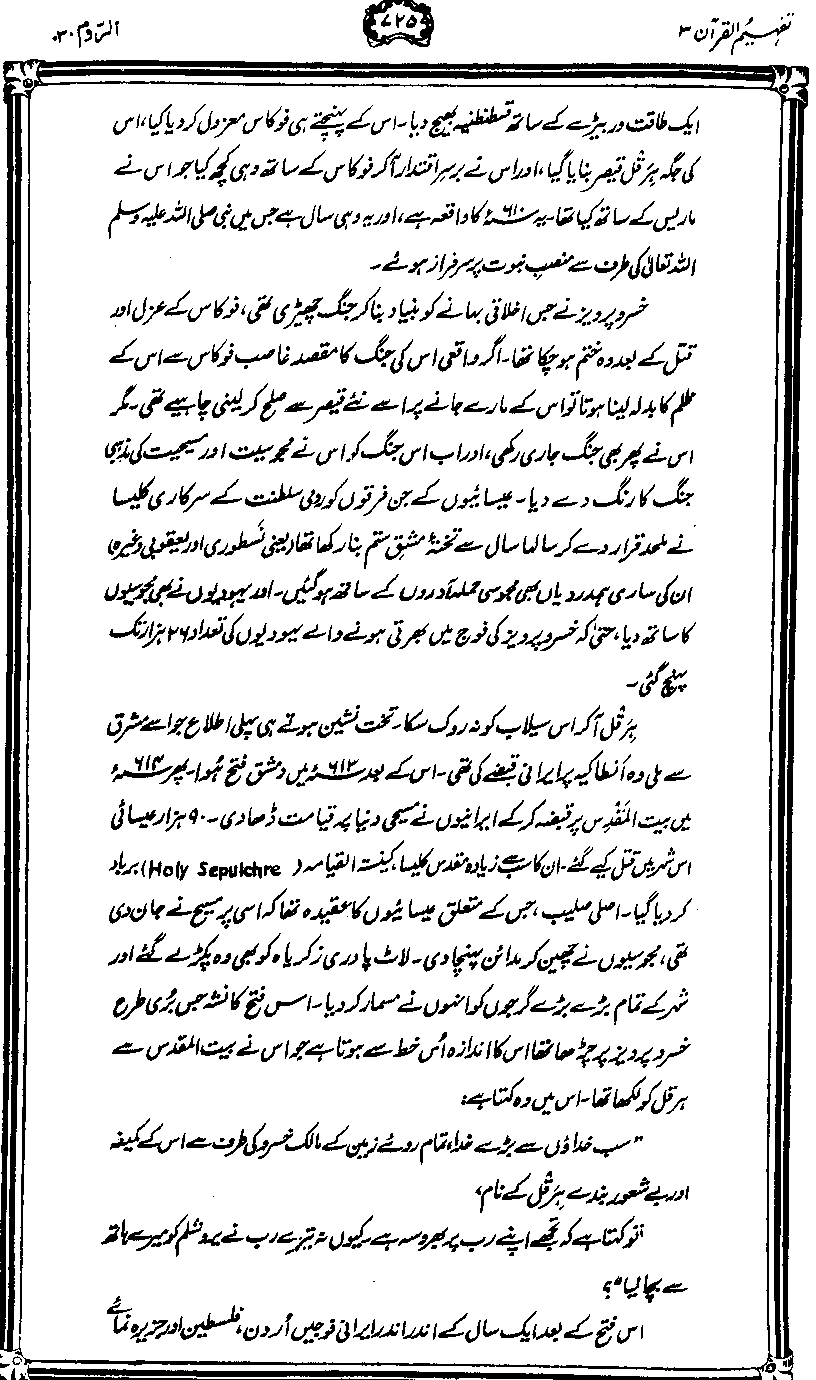 تفہیم القرآن ۳
۷۲۵
الرّوم ۳۰
ایک طاقت ور بیڑے کے ساتھ قسطنطنیہ بھیج دیا۔ اس کے پہنچتے ہی فوکاس معزول کر دیا گیا، اس
کی جگہ ہِرَقْل قیصر بنایا گیا، اور اس نے برسرِ اقتدار آکر فوکاس کے ساتھ وہی کچھ کیا جو اس نے
ماریس کے ساتھ کیا تھا۔ یہ ۶۱۰ء کا واقعہ ہے، اور یہ وہی سال ہے جس میں نبی صلی اللہ علیہ وسلم
اللہ تعالیٰ کی طرف سے منصبِ نبوت پر سرفراز ہوئے۔
خسرو پرویز نے جس اخلاقی بہانے کو بنیاد بنا کر جنگ چھیڑی تھی، فوکاس کے عزل اور
قتل کے بعد وہ ختم ہو چکا تھا۔ اگر واقعی اس کی جنگ کا مقصد غاصب فوکاس سے اس کے
ظلم کا بدلہ لینا ہوتا تو اس کے مارے جانے پر اسے نئے قیصر سے صلح کر لینی چاہیے تھی۔ مگر
اس نے پھر بھی جنگ جاری رکھی، اور اب اس جنگ کو اس نے مجوسیت اور مسیحیت کی مذہبی
جنگ کا رنگ دے دیا۔ عیسائیوں کے جن فرقوں کو رومی سلطنت کے سرکاری کلیسا
نے ملحد قرار دے کر سالہا سال سے تختۂ مشق ستم بنا رکھا تھا (یعنی نَسطوری اور یعقوبی وغیرہ)
ان کی ساری ہمدردیاں بھی مجوسی حملہ آوروں کے ساتھ ہو گئیں۔ اور یہودیوں نے بھی مجوسیوں
کا ساتھ دیا، حتیٰ کہ خسرو پرویز کی فوج میں بھرتی ہونے والے یہودیوں کی تعداد ۲۶ ہزار تک
پہنچ گئی۔
ہِرَقْل آکر اس سیلاب کو نہ روک سکا۔ تخت نشین ہوتے ہی پہلی اطلاع جو اسے مشرق
سے ملی وہ اَنطاکیہ پر ایرانی قبضے کی تھی۔ اس کے بعد ۶۱۳ء میں دمشق فتح ہُوا۔ پھر ۶۱۴ء
میں بیت المَقْدِس پر قبضہ کر کے ایرانیوں نے مسیحی دنیا پر قیامت ڈھا دی۔ ۹۰ ہزار عیسائی
اس شہر میں قتل کیے گئے۔ ان کا سب سے زیادہ مقدس کلیسا، کنیسۃ القیامہ (Holy Sepulchre) برباد
کر دیا گیا۔ اصلی صلیب، جس کے متعلق عیسائیوں کا عقیدہ تھا کہ اسی پر مسیح نے جان دی
تھی، مجوسیوں نے چھین کر مدائن پہنچا دی۔ لاٹ پادری زکریاہ کو بھی وہ پکڑ لے گئے اور
شہر کے تمام بڑے بڑے گرجوں کو انہوں نے مسمار کر دیا۔ اس فتح کا نشہ جس بُری طرح
خسرو پرویز پر چڑھا تھا اس کا اندازہ اُس خط سے ہوتا ہے جو اس نے بیت المقدس سے
ہرقل کو لکھا تھا۔ اس میں وہ کہتا ہے:
"سب خداؤں سے بڑے خدا، تمام روئے زمین کے مالک خسرو کی طرف سے اس کے کمینہ
اور بے شعور بندے ہِرَقْل کے نام،
تو کہتا ہے کہ تجھے اپنے رب پر بھروسہ ہے۔ کیوں نہ تیرے رب نے یروشلم کو میرے ہاتھ
سے بچا لیا"؟
اس فتح کے بعد ایک سال کے اندر اندر ایرانی فوجیں اُردن، فلسطین اور جزیرہ نمائے